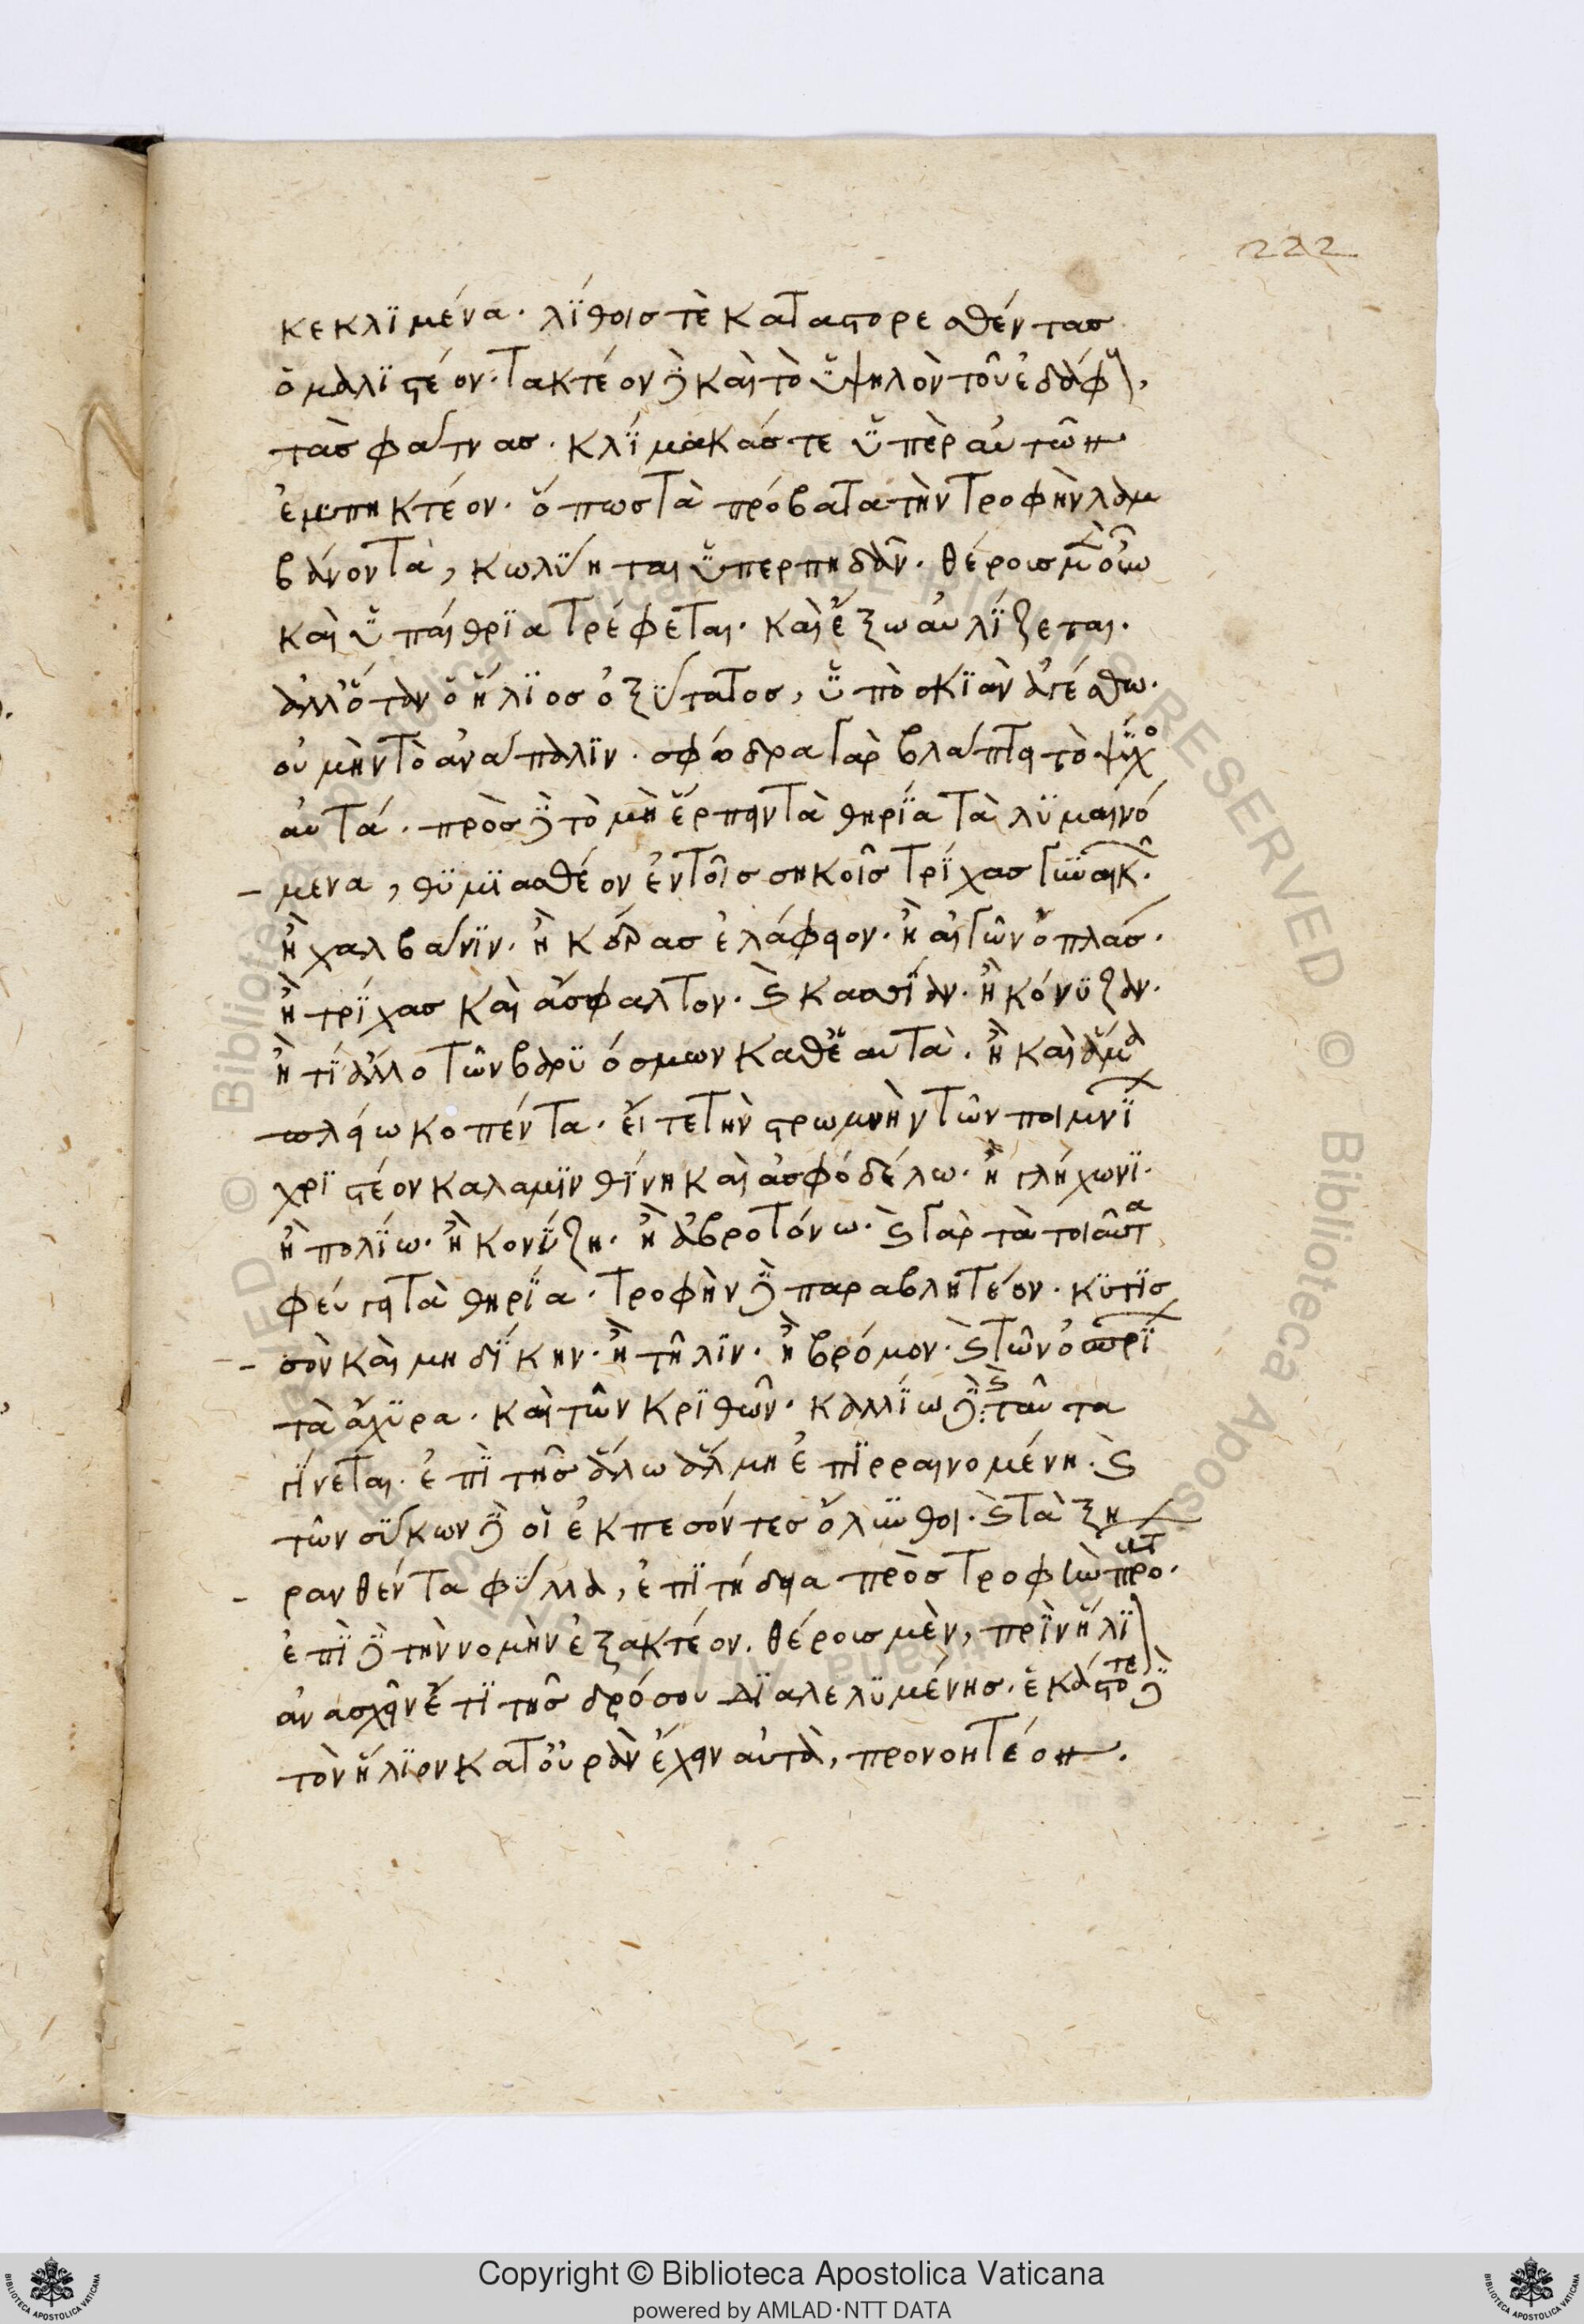 222
κεκλϊμένα· λΐθοισ τὲ καταστορεσθέντασ
ὁμαλϊστέον· τακτέον δὲ καὶ τὸ ὕψηλὸν τοῦ ἐδάφ,
τὰσ φάτνασ· κλΐμακάσ τε ὕπὲρ αὐτῶν
ἐμπηκτέον· ὅπωσ τὰ πρόβατα τὴν τροφὴν λαμ
βάνοντα, κωλΰηται ὕπερπηδᾶν· θέρουσ μὲν οὖν
καὶ ὕπαίθρϊα τρέφεται· καὶ ἔξω αὐλΐζεται·
ἀλλ' ὅταν ὁ ἥλϊοσ ὀξΰτατοσ, ὕπὸ σκϊὰν ἀγέσθω·
οὐ μὴν τὸ ἀνάπαλϊν· σφόδρα γὰρ βλάπτει τὸ ψῦχο
αὐτά· πρὸσ δὲ τὸ μὴ ἕρπειν τὰ θηρΐα τὰ λϋμαινό
– μενα, θϋμϊαστέον ἐν τοῖσ σηκοῖσ τρΐχασ γϋναικ·
ἢ χαλβάνϊν· ἢ κέρασ ἐλάφειον· ἢ αἰγῶν ὁπλάσ·
ἢ τρΐχασ καὶ ἄσφαλτον· ἢ κασσΐαν· ἢ κόνϋζαν·
ἢ τΐ ἄλλο τῶν βαρϋόσμων καθ' ἑαυτὰ· ἢ καὶ ἅμα
πλείω κοπέντα· εἴτε τὴν στρωμνὴν τῶν ποιμνΐ
χρϊστέον καλαμϊνθΐνη καὶ ἀσφόδέλω· ἢ γλήχωνϊ·
ἢ πολΐω· ἢ κονΰζη· ἢ ἀβροτόνω· γὰρ τὰ τοιαῦτα
φεύγει τὰ θηρΐα· τροφὴν δὲ παραβλητέον· κϋτϊσ
– σὸν καὶ μηδΐκην· ἢ τῆλϊν· ἢ βρόμον· καὶ τῶν ὀσπρΐ
τὰ ἄχϋρα· καὶ τῶν κρϊθῶν· καλλΐω δὲ καὶ ταῦτα
γΐνεται· ἐπῒ τῆσ ἅλω ἅλμη ἐπϊρραινομένη· καὶ
τῶν σΰκων δὲ οἱ ἐκπεσόντεσ ὄλυνθοι· καὶ τὰ ξη
– ρανθέντα φΰλλα, ἐπϊτήδεια πρὸσ τροφὴν προ·
ἐπῒ δὲ τὴν νομὴν ἐξακτέον. θέρουσ μὲν, πρῒν ἥλϊ
ἀνασχεῖν ἔτϊ τῆσ δρόσου δϊαλελϋμένησ· ἑκάστοτε δὲ
τὸν ἥλϊον κατ' οὐρὰν ἔχειν αὐτὰ, προνοητέον.
Copyright © Biblioteca Apostolica Vaticana
powered by AMLAD·NTT DATA